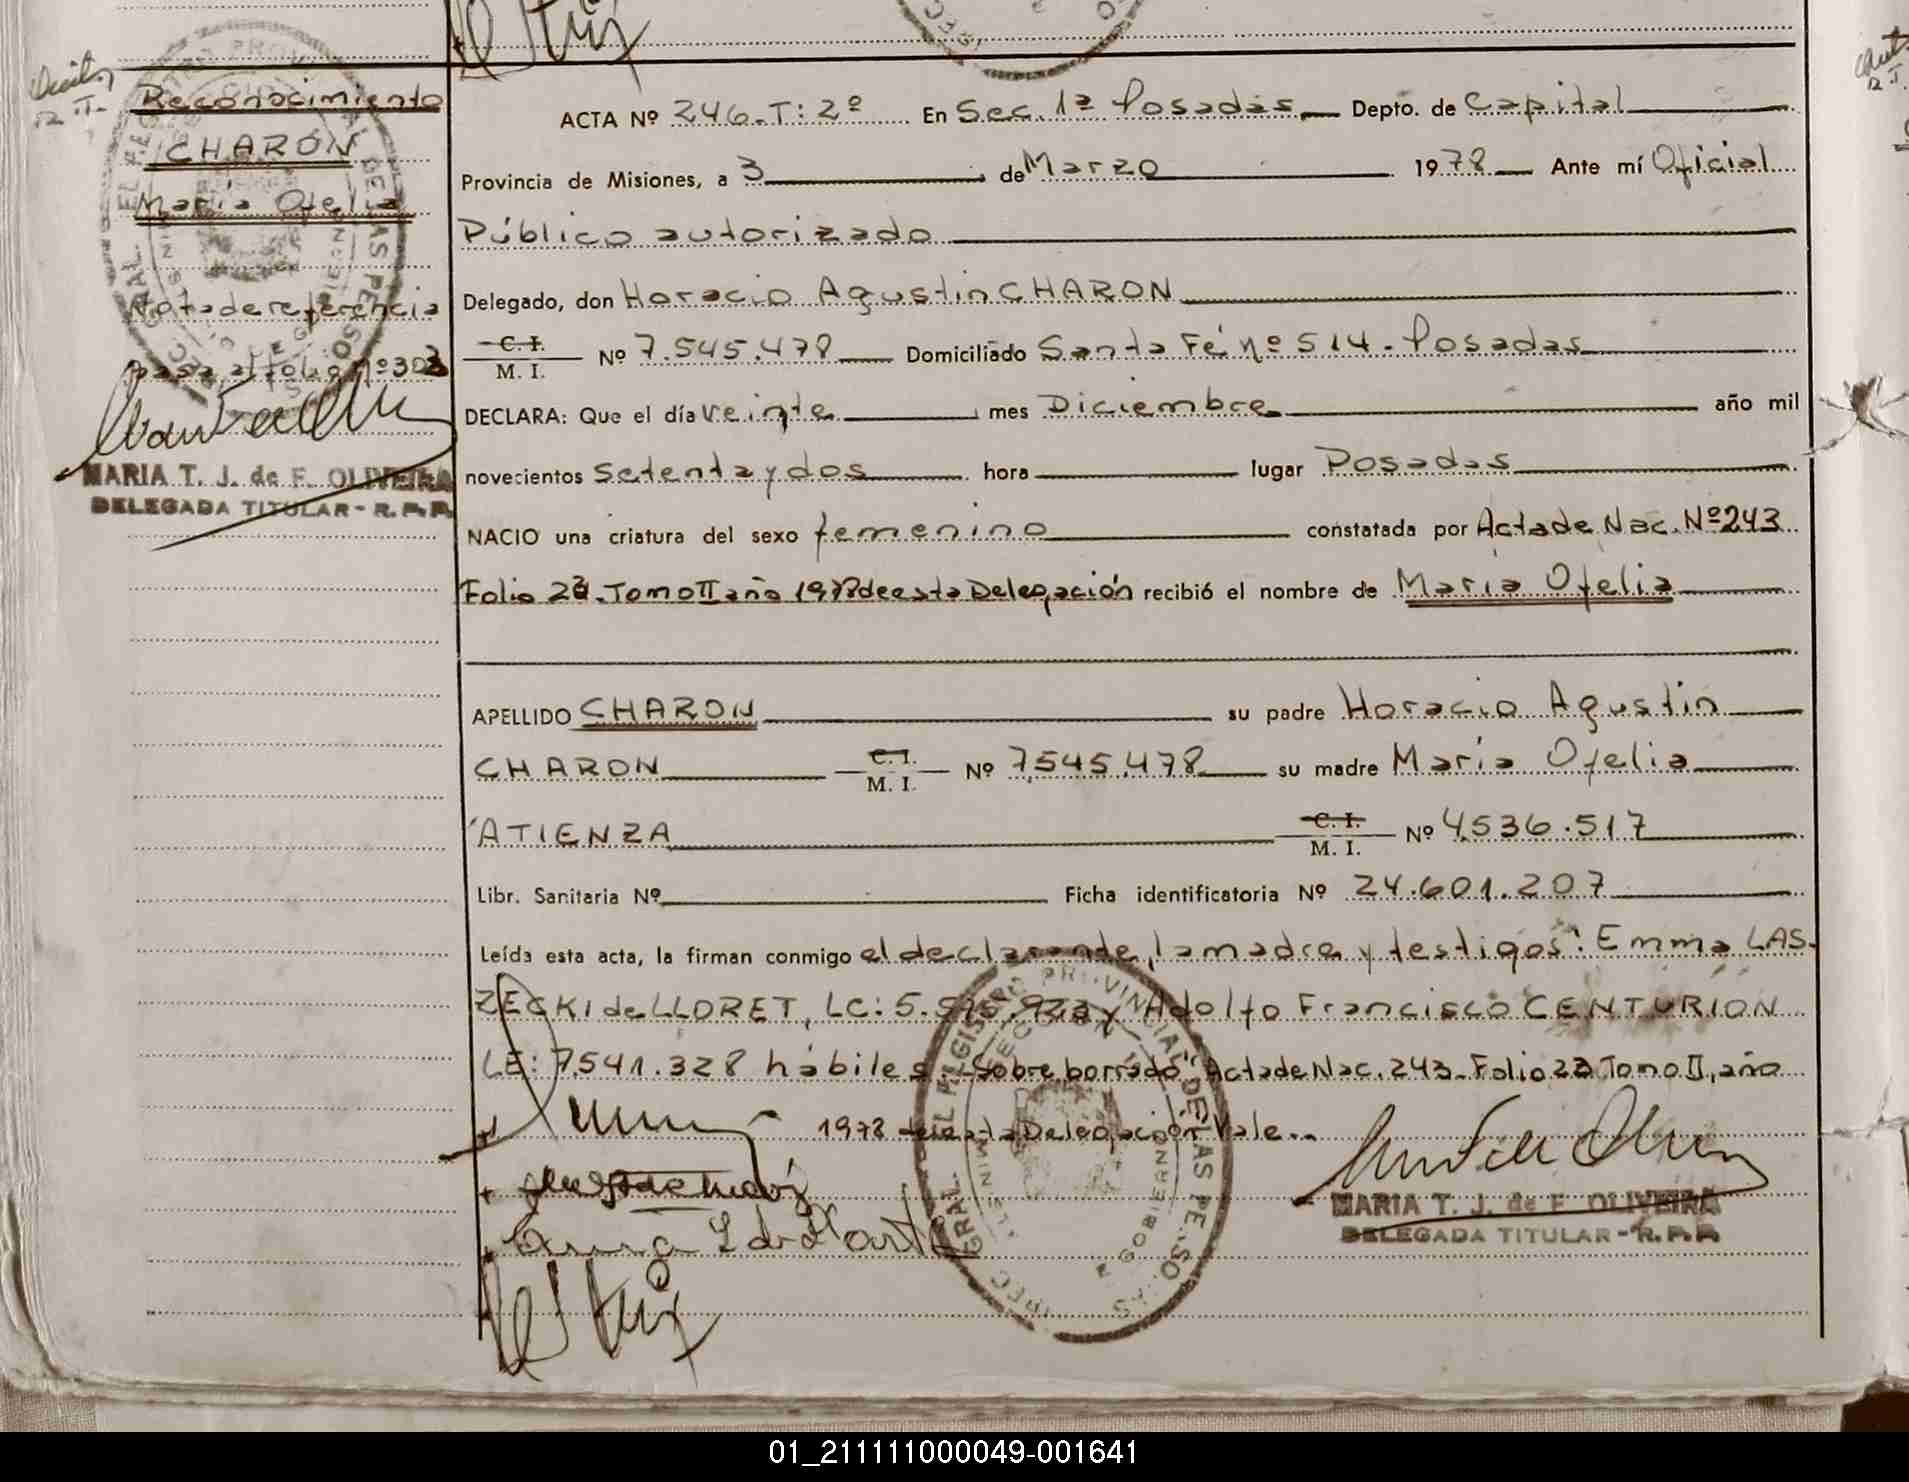 Reconocimiento
CHARÓN
María Ofelia
Nota de referencia
pasa al folio nº 303
MARIA T. J. de F. OLIVEIRA
DELEGADA TITULAR - R. P. P.
ACTA Nº 246. T: 2º En Sec. 1ª Posadas, Depto. de Capital
Provincia de Misiones, a 3 de Marzo 1978 Ante mí Oficial
Público autorizado
Delegado, don Horacio Agustin CHARON
C. I. M. I. Nº 7.545.478 Domiciliado Santa Fé nº 514 - Posadas
DECLARA: Que el día veinte mes Diciembre año mil
novecientos setenta y dos hora lugar Posadas
NACIO una criatura del sexo femenino constatada por Acta de Nac. Nº 243
Folio 22. Tomo II año 1978 de esta Delegación recibió el nombre de María Ofelia
APELLIDO CHARON su padre Horacio Agustin
CHARON C. I. M. I. Nº 7.545.478 su madre María Ofelia
ATIENZA C. I. M. I. Nº 4.536.517
Libr. Sanitaria Nº Ficha identificatoria Nº 24.601.207
Leída esta acta, la firman conmigo el declarante, la madre y testigos: Emma LAS-
ZECKI de LLORET, LC: 5. y Adolfo Francisco CENTURIÓN
LE: 7.541.328 hábiles. "Sobre borrado" Acta de Nac. 243 - Folio 22 Tomo II, año
1978 de esta Delegación Vale.-
MARIA T. J. de F. OLIVEIRA
DELEGADA TITULAR - R. P. P.
01_211111000049-001641